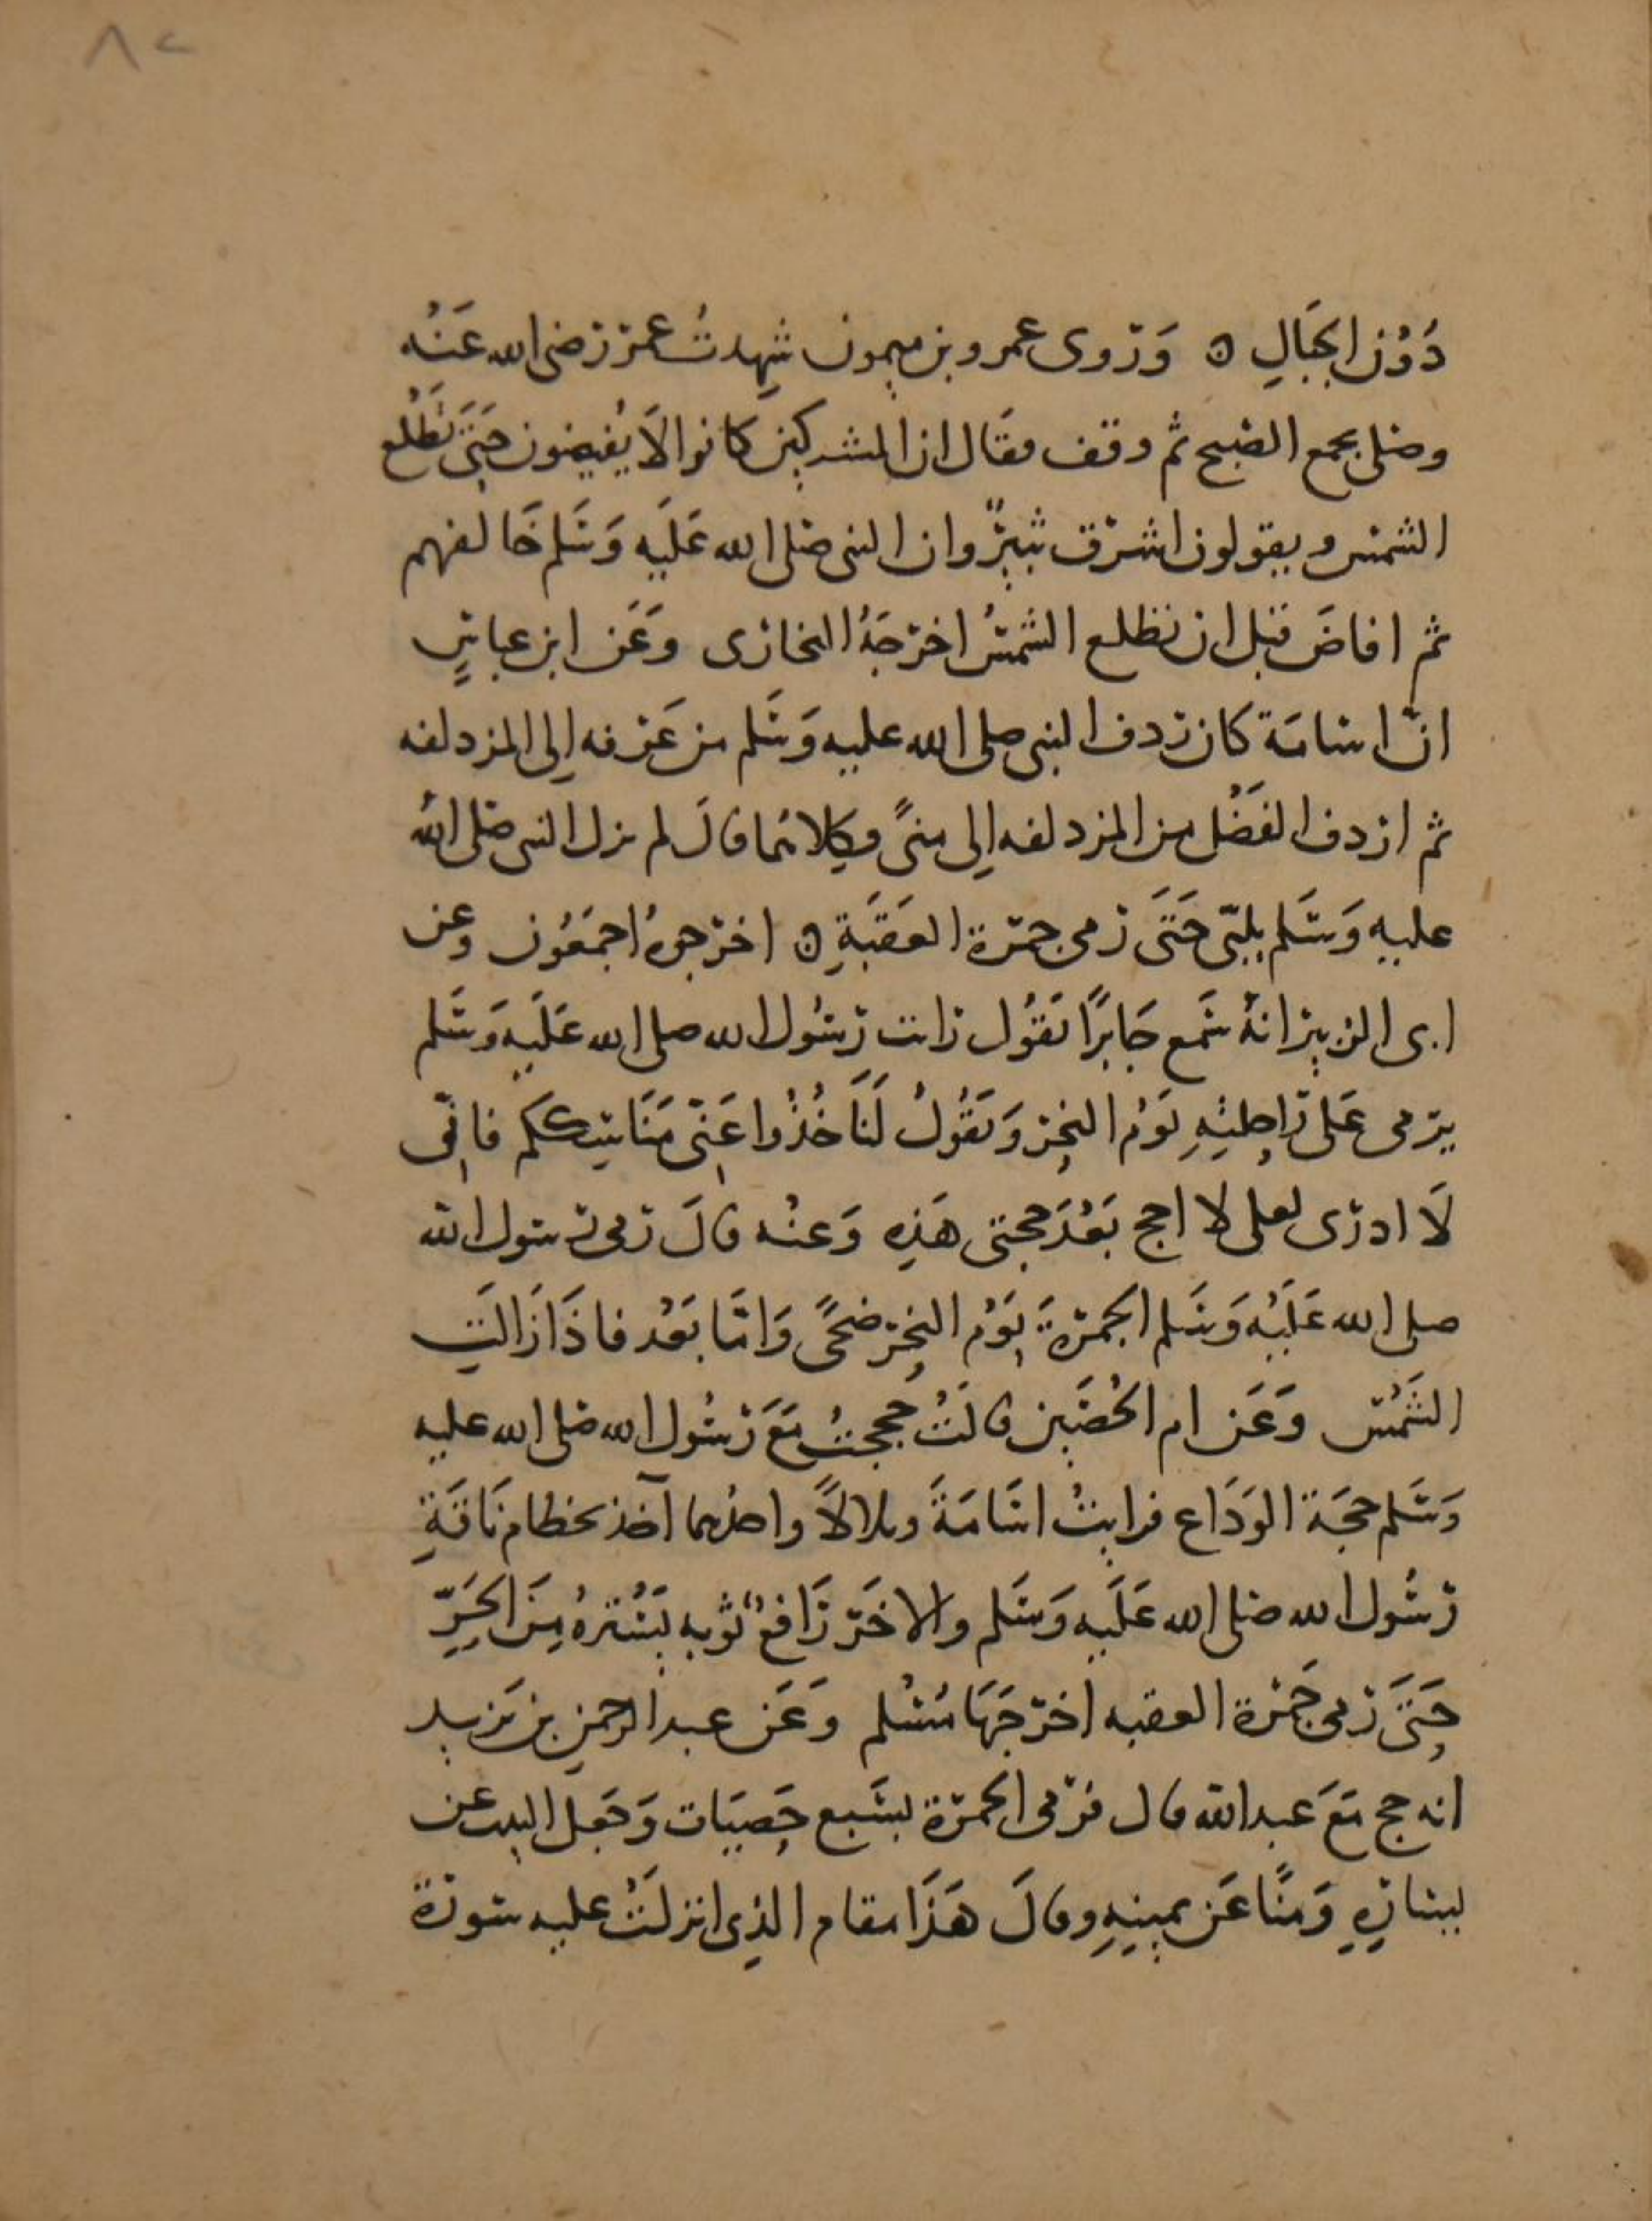 ٨٢
دُوْن الجبَالِ ه وَروى عمرو بن ميمون شهدتُ عمر رضى الله عَنْه
وصلى بجمع الصبح ثم وقف فقال ان المشركين كانوا لا يُفيضون حَتَى تَطْلُع
الشمس ويقولون اشرق ثبيرٌ وان النبى صلى الله عَلَيه وَسَلم خَالفهم
ثم افاضَ قبل ان تطلع الشمسُ اخرجَهُ البخارى وعَن ابن عباسٍ
انّ اسامَة كان ردف النبى صلى الله عليه وَسَلم من عَرفه الى المزدلفه
ثم اردف الفَضْل من المزدلفه الى منىً وكلاهُما قالَ لم يزل النبى صلى الله
عليهِ وَسَلم يلبّى حَتَى رمى جمرة العَقَبَةِ ه اخرجوهُ اجمَعُون وعن
ابى الزبير انهُ سَمع جَابرًا يَقُول رايت رَسُول الله صلى الله عَلَيهِ وَسَلم
يرمى عَلى رَاحلتِهِ يَوْم النحر وَيَقُولُ لَنَا خُذُوا عَنّى مَنَاسِككم فانّى
لَا ادرى لعلى لا احج بَعْدَ حجتى هَذِهِ وَعنْه قالَ رمى رسول الله
صلى الله عَلَيْه وَسَلم الجمرةَ يَوْم النحر ضحًى وَامَّا بَعْد فاذَا زَالَتِ
الشَمْس وَعَن ام الحُصَين قالَتْ حججتُ مَعَ رَسُول الله صلى الله عليه
وَسَلم حجَة الوَدَاع فرايتُ اسَامَةَ وبلالاً واحدهما آخذ بخطام نَاقَةِ
رسُول الله صلى الله عَلَيهِ وَسَلم والاخَر رَافعٌ ثوبه يَسْترهُ مِنَ الحَرِّ
حَتَى رمى جَمْرة العقبه اخرَجَهَا مُسْلم وَعَن عبد الرحمن بن يَزيد
انه حج مَعَ عبد الله قال فرمى الجمرة بسَبع حَصيَات وَجَعل البيت عن
يسَارِهِ وَمنًا عَن يمينِهِ وقالَ هَذَا مقام الذى انزلَتْ عليه سورة